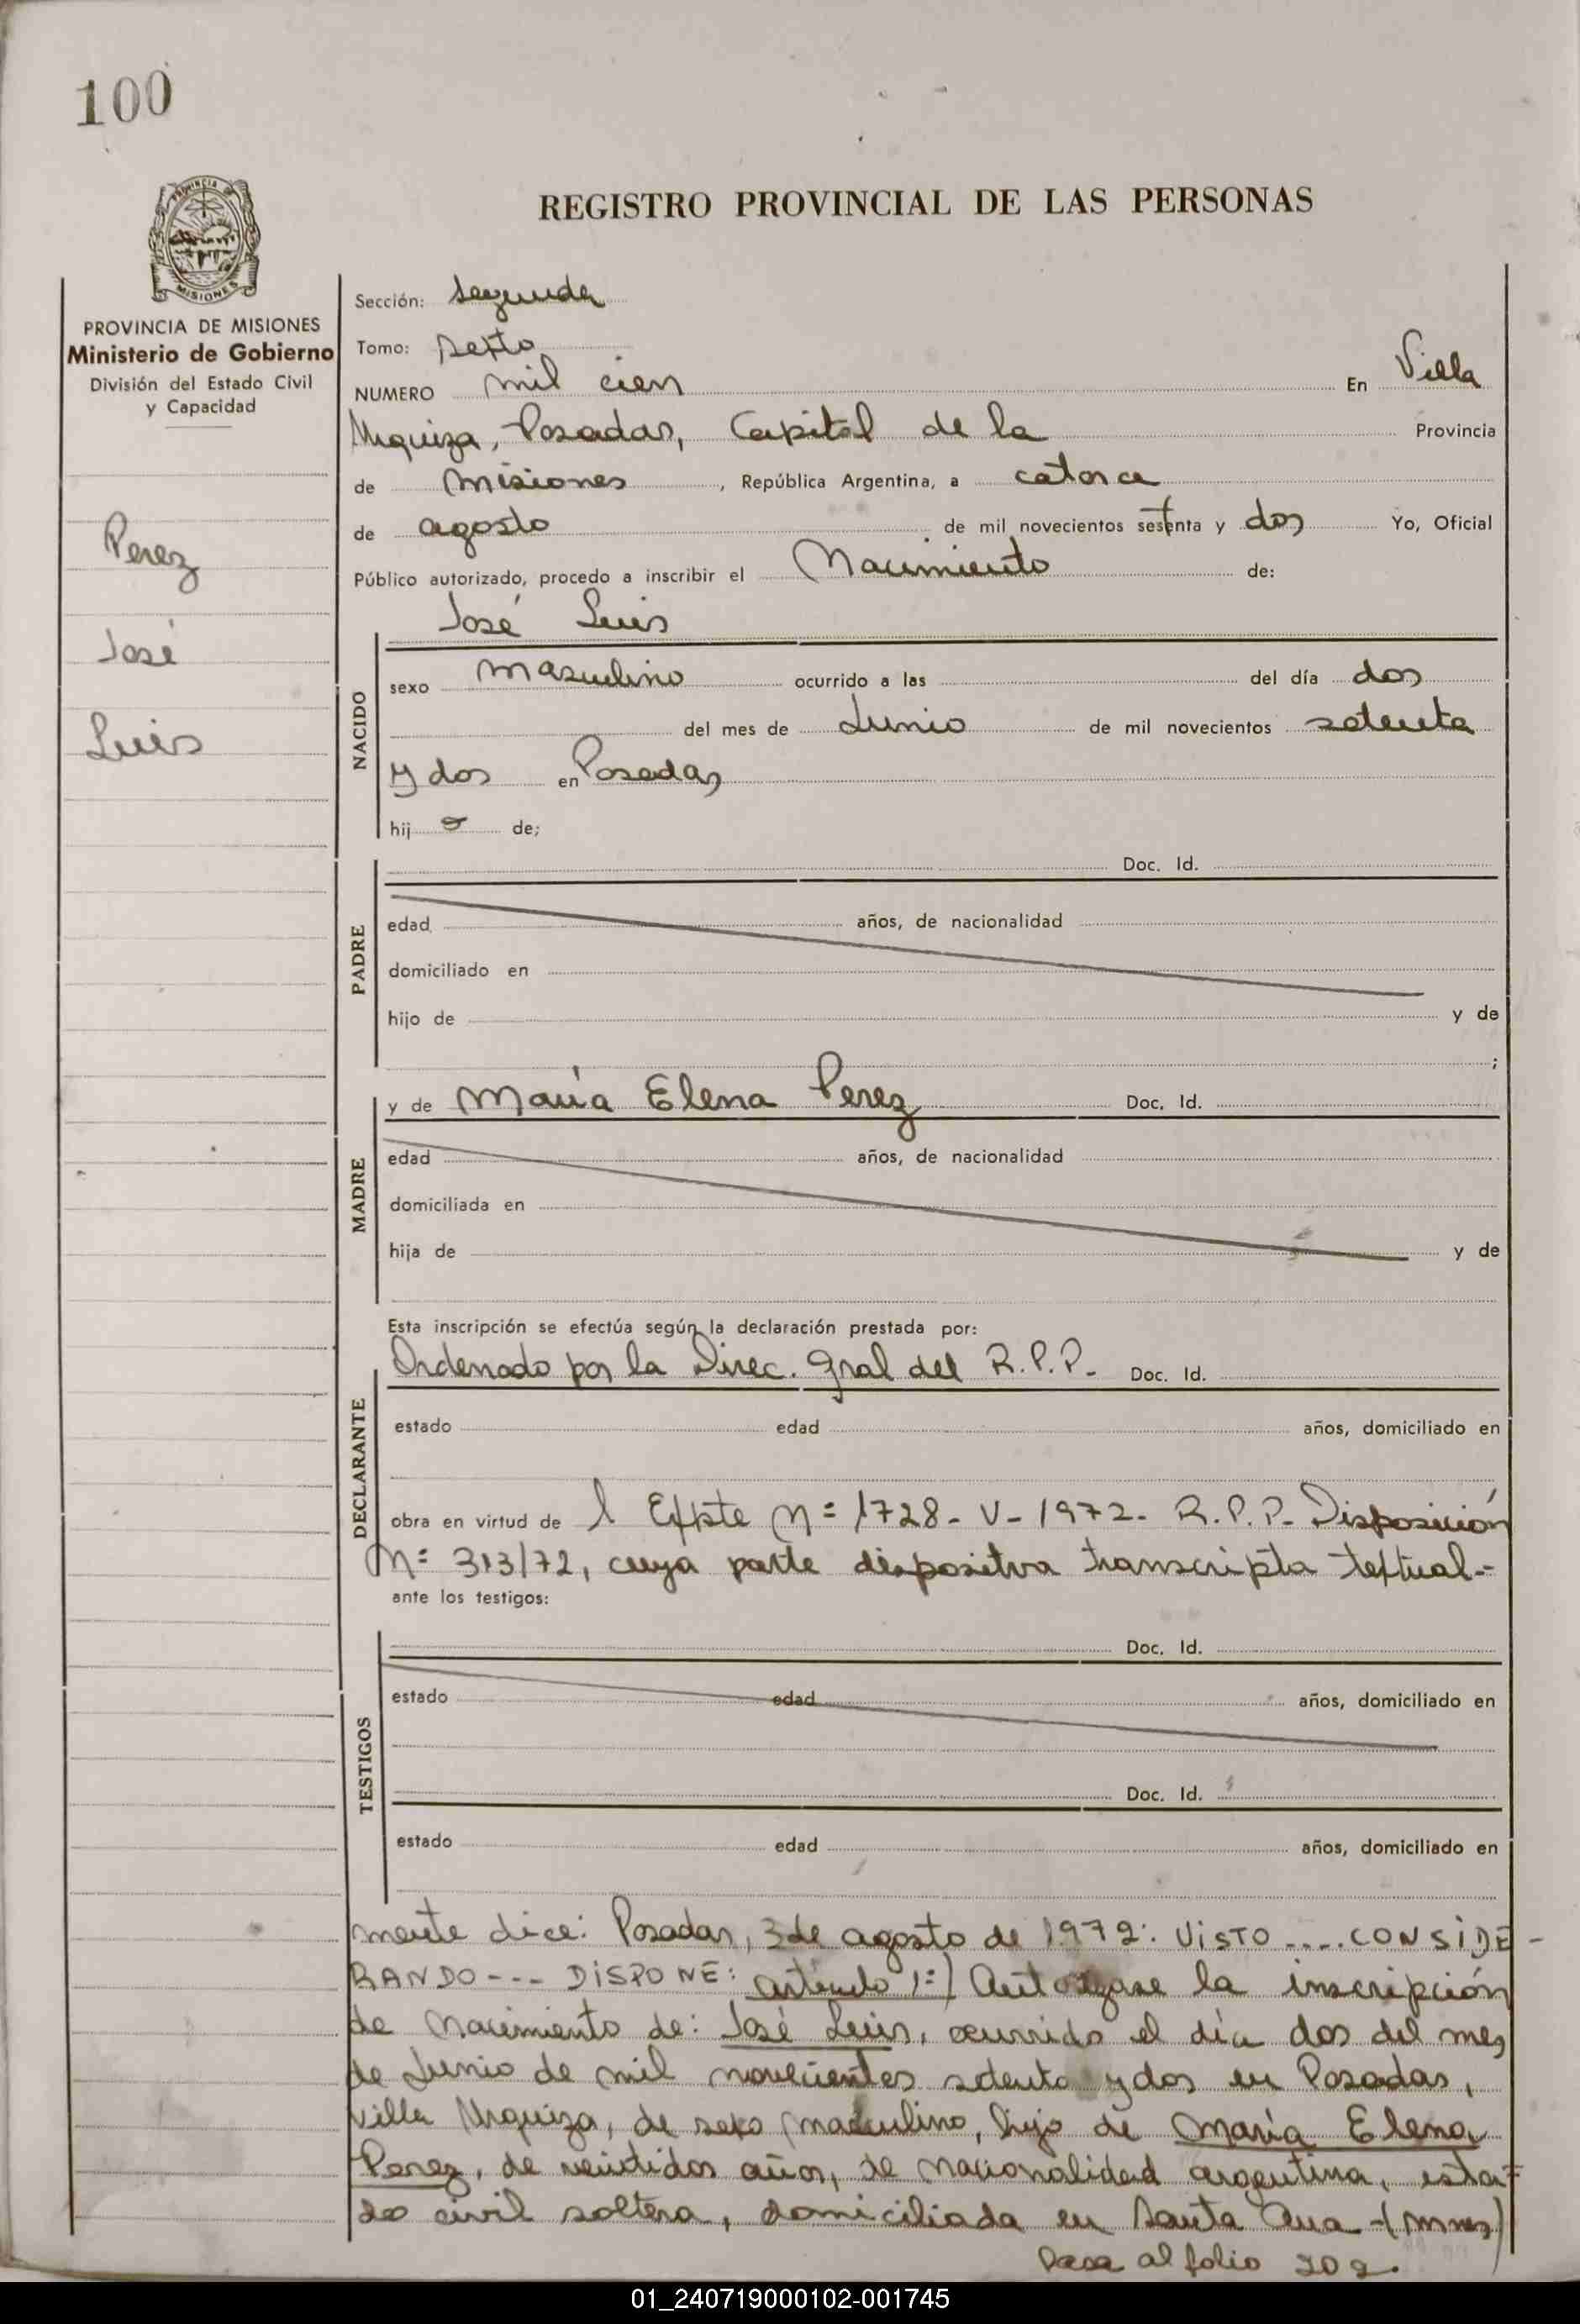 100
PROVINCIA DE
MISIONES
REGISTRO PROVINCIAL DE LAS PERSONAS
PROVINCIA DE MISIONES
Ministerio de Gobierno
División del Estado Civil
y Capacidad
Perez
José
Luis
Sección: segunda
Tomo: sexto
NUMERO mil cien En Villa
Urquiza, Posadas, Capital de la Provincia
de Misiones, República Argentina, a catorce
de agosto de mil novecientos setenta y dos Yo, Oficial
Público autorizado, procedo a inscribir el Nacimiento de:
José Luis
NACIDO
sexo masculino ocurrido a las del día dos
del mes de Junio de mil novecientos setenta
y dos en Posadas
hij o de;
Doc. Id.
PADRE
edad años, de nacionalidad
domiciliado en
hijo de y de
;
MADRE
y de María Elena Perez Doc. Id.
edad años, de nacionalidad
domiciliada en
hija de y de
Esta inscripción se efectúa según la declaración prestada por:
DECLARANTE
Ordenado por la Direc. Gral del R.P.P.- Doc. Id.
estado edad años, domiciliado en
obra en virtud de l Expte Nº 1728-V-1972- R.P.P- Disposición
Nº 313/72, cuya parte dispositva transcripta textual=
ante los testigos:
TESTIGOS
Doc. Id.
estado edad años, domiciliado en
Doc. Id.
estado edad años, domiciliado en
mente dice: Posadas, 3 de agosto de 1972: VISTO .... CONSIDE-
RANDO --- DISPONE: artículo 1º) Autorizase la inscripción
de Nacimiento de: José Luis, ocurrido el día dos del mes
de Junio de mil novecientos setenta y dos en Posadas,
Villa Urquiza, de sexo masculino, hijo de María Elena
Perez, de veintidos años, de nacionalidad argentina, esta=
do civil soltera, domiciliada en Santa Ana -(Mnes)
Pasa al folio 202.
01_240719000102-001745